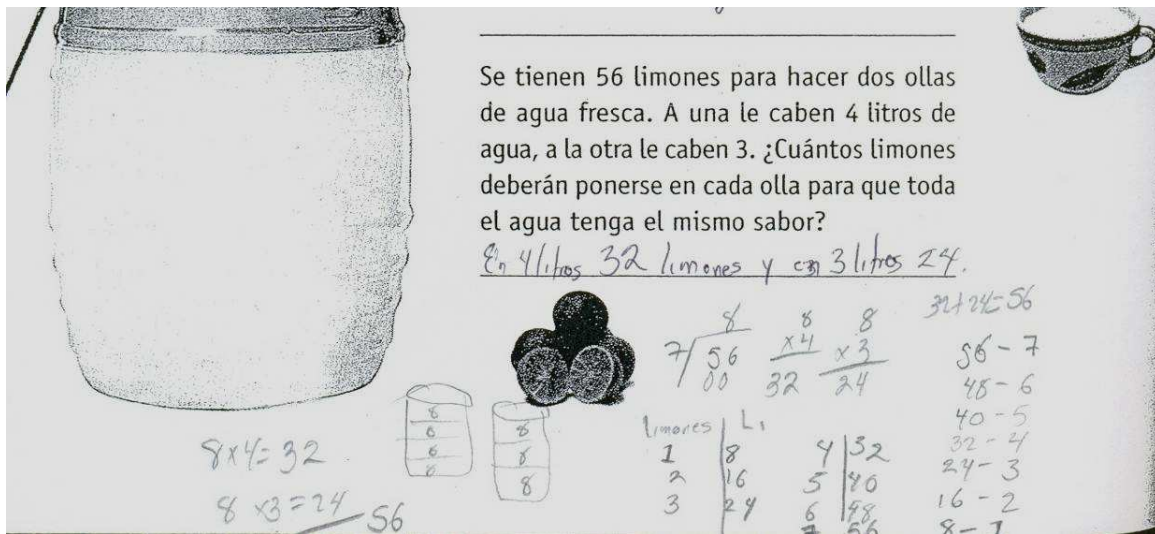 Se tienen 56 limones para hacer dos ollas
de agua fresca. A una le caben 4 litros de
agua, a la otra le caben 3. ¿Cuántos limones
deberán ponerse en cada olla para que toda
el agua tenga el mismo sabor?
En 4 litros 32 limones y en 3 litros 24.
32+24=56
8
7/56
00
8
x4
32
8
x3
24
56 - 7
48 - 6
40 - 5
32 - 4
24 - 3
16 - 2
8 - 1
8
8
8
8
8
8
8
8x4=32
8x3=24
56
limones | L.
1 | 8
2 | 16
3 | 24
4 | 32
5 | 40
6 | 48
7 | 56